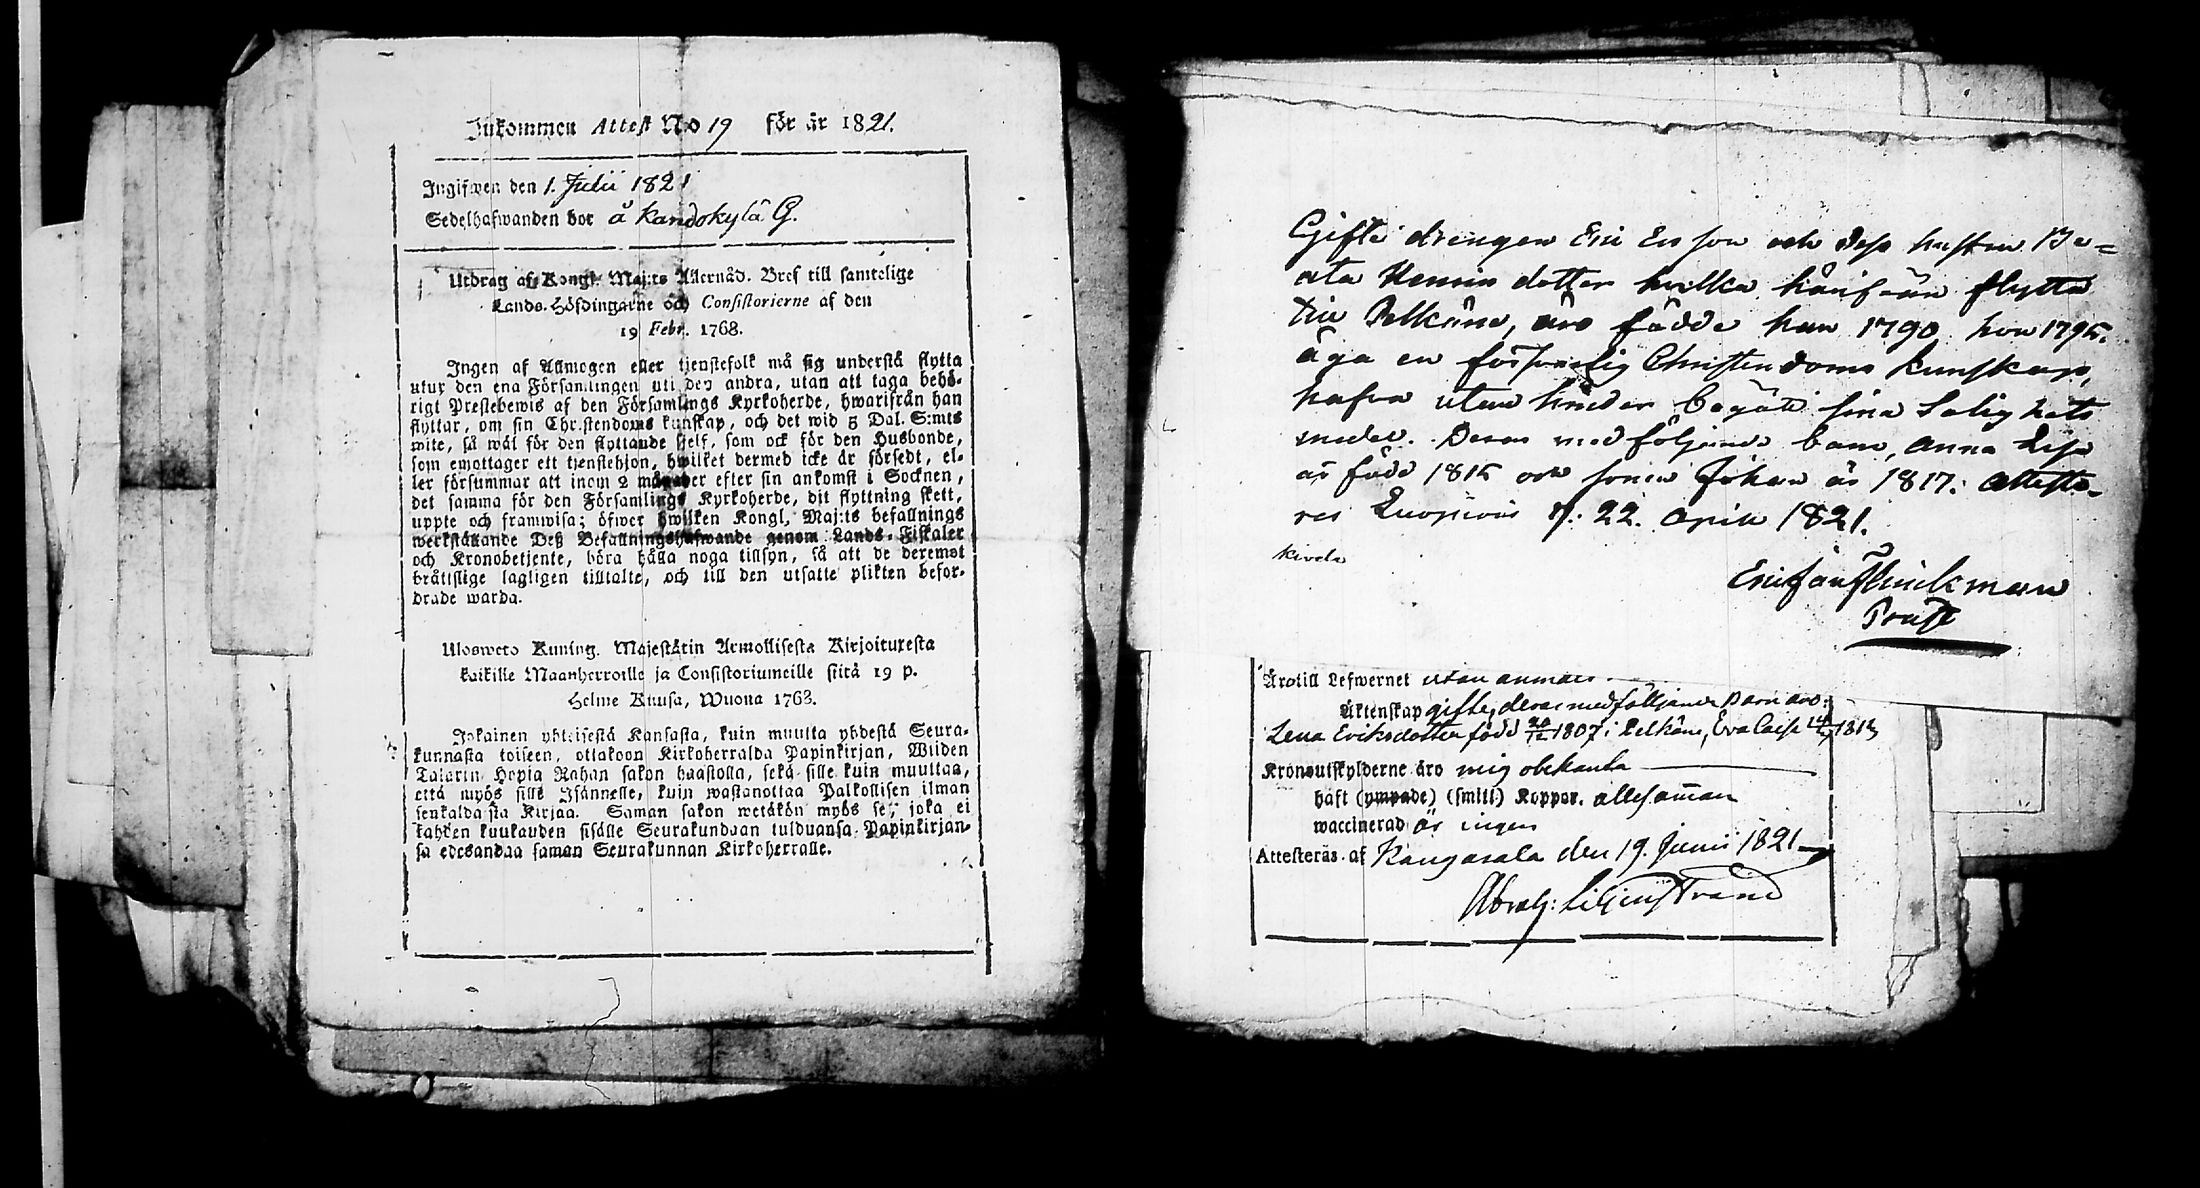 Inkommen Attest No 19 för år 1821.
Ingifwen den 1. Julii 1821
Sedelhafwanden bor å Kandokylä G.
Utdrag af Kongl. Maj:ts Allernåd. Bref till samtelige
Lands-Höfdingarne och Consistorierne af den
19 Febr. 1768.
Ingen af Allmogen eller tjenstefolk må sig understå flytta
utur den ena Församlingen uti den andra, utan att taga behö-
rigt Prestebewis af den Församlings Kyrkoherde, hwarifrån han
flyttar, om sin Christendoms kunskap, och det wid 5 Dal. S:mts
wite, så wäl för den flyttande sjelf, som ock för den Husbonde,
som emottager ett tjenstehjon, hwilket dermed icke är försedt, el-
ler försummar att inom 2 månader efter sin ankomst i Socknen,
det samma för den Församlings Kyrkoherde, dit flyttning skett,
uppte och framwisa; öfwer hwilken Kongl. Maj:ts befallnings
werkställande Deß Befallningshafwande genom Lands-Fiskaler
och Kronobetjente, böra hålla noga tillsyn, så att de deremot
bråttslige lagligen tilltalte, och till den utsatte plikten befor-
drade warda.
Ulosweto Kuning. Majestätin Armollisesta Kirjoituxesta
kaikille Maanherroille ja Consistoriumeille siitä 19 p.
Helme Kuusa, Wuona 1768.
Jokainen yhteisestä Kansasta, kuin muutta yhdestä Seura-
kunnasta toiseen, ottakoon Kirkoherralda Papinkirjan, Wiiden
Talarin Hopia Rahan sakon haastolla, sekä sille kuin muuttaa,
että myös sille Isännelle, kuin wastanottaa Palkollisen ilman
senkaldaista Kirjaa. Saman sakon wetäkön myös se, joka ei
kahden kuukauden sisälle Seurakundaan tulduansa Papinkirjan-
sa edesandaa saman Seurakunnan Kirkoherralle.
Gifte drengen Eric Ersson och dess hustru Be-
ata Henrics dotter hvilka härifrån flytta
till Pelkäne, äro födde han 1790 hon 1795.
äga en försvarlig Christendoms kunskap,
hafva utan hinder begått sina Salighets
medel. Deras medföljande barn, Anna Lisa
är född 1815 och sonen Johan är 1817. Atteste-
res Luopiois d. 22. April 1821.
Eric Joh
Præst
Äro till Lefwernet utan anmärk.
Äktenskap gifte, deras medföljande Barn äro:
Lena Ericsdotter född 20/12 1807 i Pelkäne, Eva Caisa 1813
Kronoutskylderne äro mig obekanta
haft (ympade) (smitt.) Koppor. allesamman
waccinerad är ingen
Attesteras af Kangasala den 19. Junii 1821
Abrah: Liljenstrand